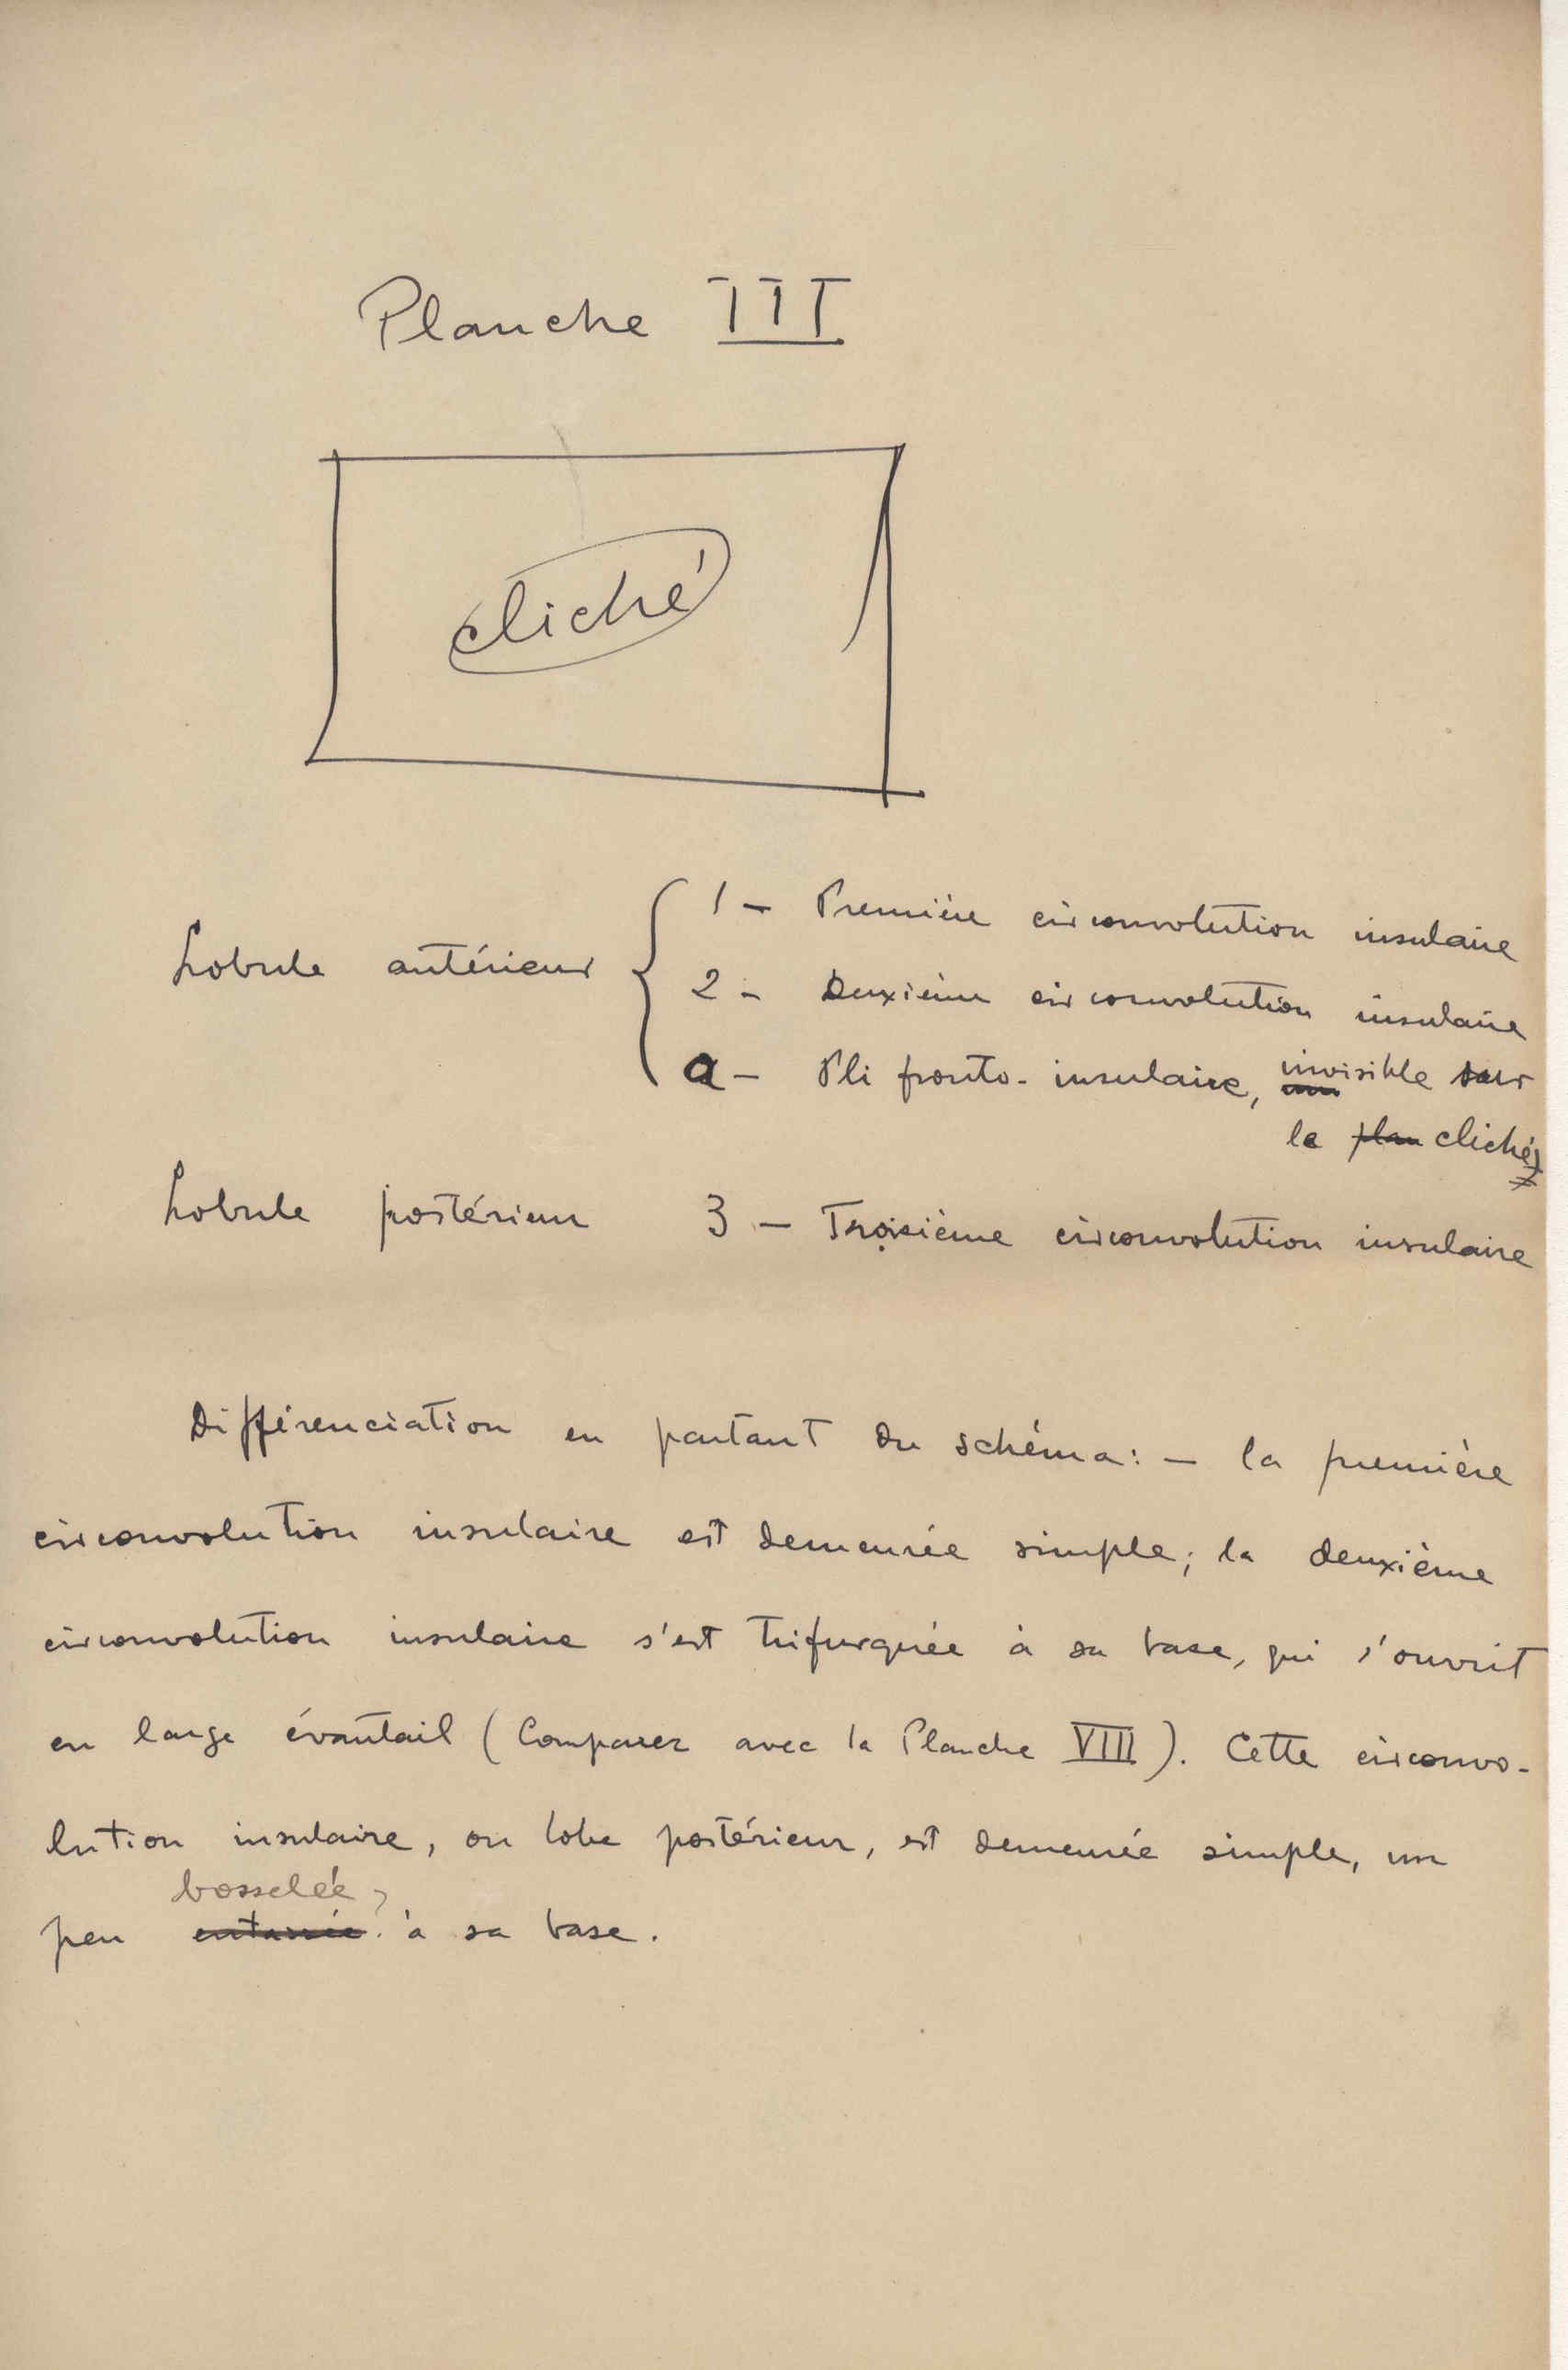 Planche III
cliché
1 - Première circonvolution insulaire
Lobule antérieur
2 - Deuxième circonvolution insulaire
a - Pli fronto-insulaire, invisible sur
le plan cliché
Lobule postérieur 3 - Troisième circonvolution insulaire
Différenciation en partant du schéma: - la première
circonvolution insulaire est demeurée simple; la deuxième
circonvolution insulaire s'est trifurquée à sa base, qui s'ouvrit
en large évantail (Comparer avec la Planche VIII). Cette circonvo-
lution insulaire, ou lobe postérieur, est demeurée simple, un
bosselée,
peu entassée à sa base.